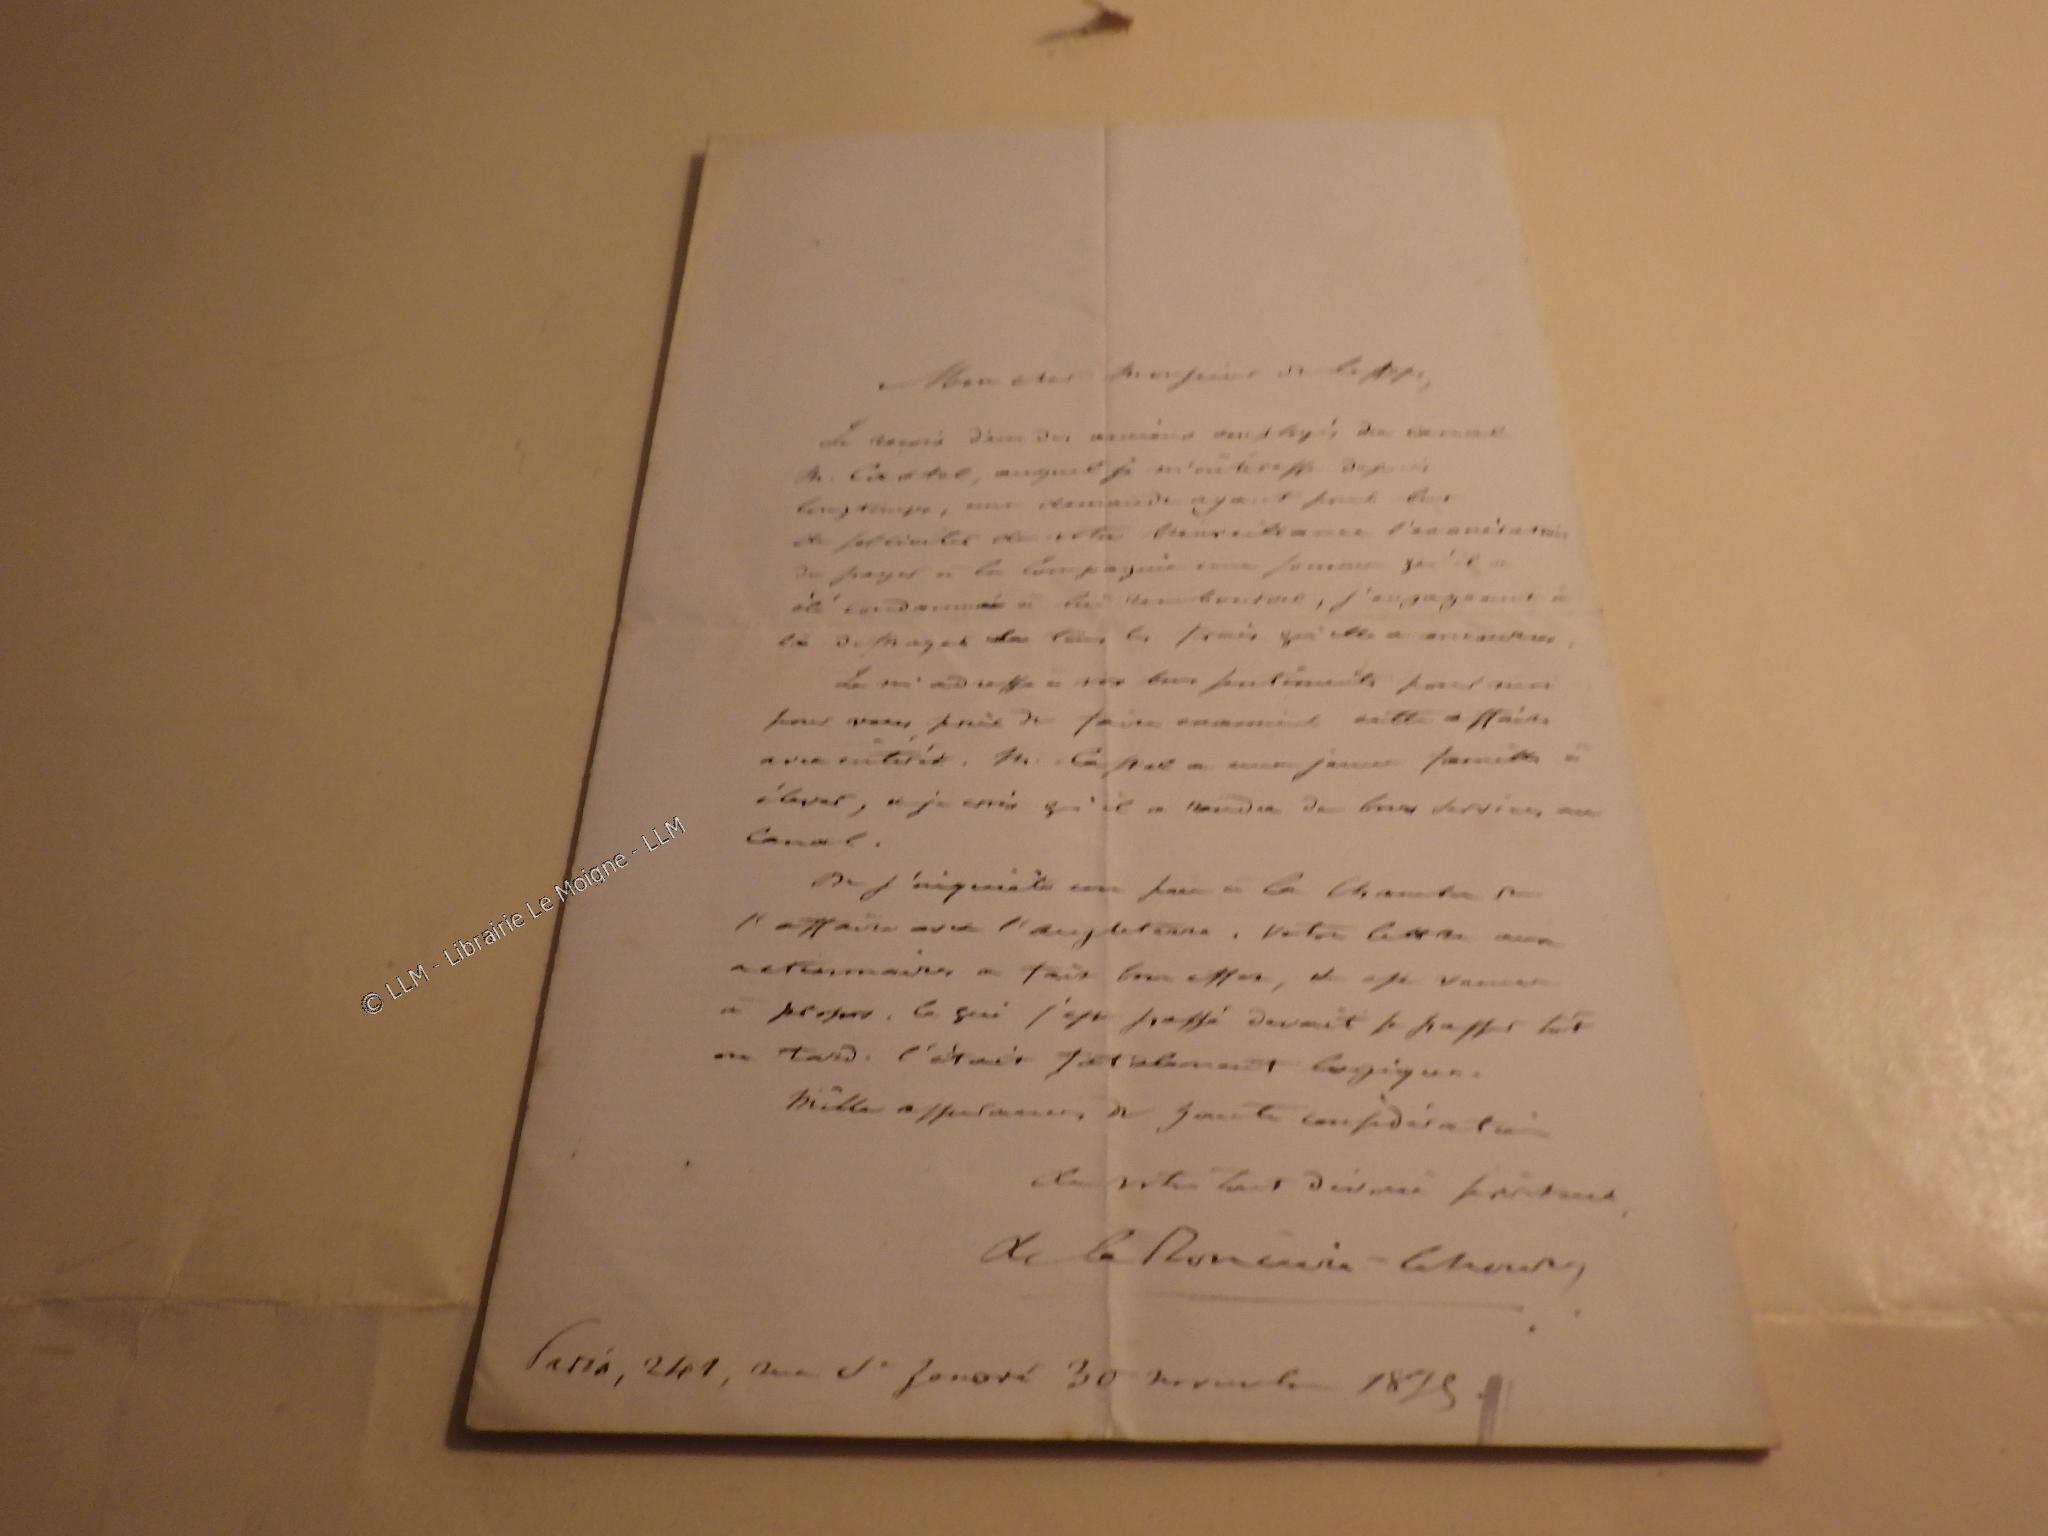 Mon cher Monsieur de Lesseps,
Je reçois d'un des anciens employés du canal
M. Castel, auquel je m'intéresse depuis
longtemps, une demande ayant pour but
de solliciter de votre bienveillance l'exonération
de payer à la Compagnie une somme qu'il a
été condamné à lui rembourser, s'engageant à
la défrayer de tous les frais qu'elle a encourus.
Je m'adresse à vos bons sentiments pour moi
pour vous prier de faire examiner cette affaire
avec intérêt. M. Castel a une jeune famille à
élever, et je crois qu'il a rendu de bons services au
Canal.
On s'inquiète un peu à la Chambre de
l'affaire avec l'Angleterre. Votre lettre aux
actionnaires a fait bon effet, et est venue
à propos. Ce qui s'est passé devait se passer tôt
ou tard. C'était fatalement logique.
Mille assurances de haute considération
de votre tout dévoué serviteur,
de la Roncière-le Noury
Paris, 241, rue St Honoré 30 novembre 1875
© LLM - Librairie Le Moigne - LLM